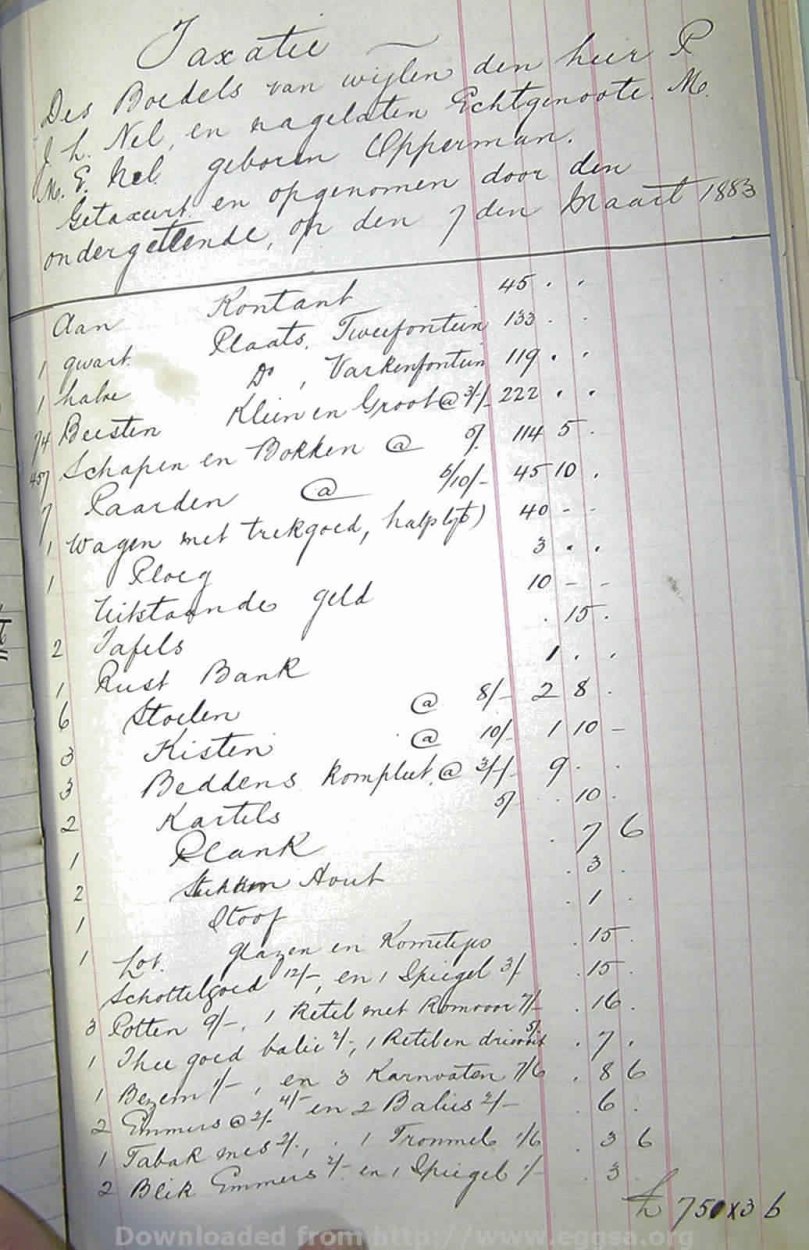 Taxatie
Des Boedels van wijlen den heer P
J. h. Nel, en nagelaten Echtgenoote. M.
M. E. Nel geboren Opperman.
Getaxeert en opgenomen door den
ondergetende, op den 7 den Maart 1883
Aan Kontant 45 . .
1 qwart Plaats, Tweefontein 133 . .
1 halve Do , Varkenfontein 119 . .
74 Beesten Klein en Groot @ 3/- 222 . .
457 Schapen en Bokken @ 5/ 114 5 .
7 Paarden @ 6/10/- 45 10 .
1 Wagen met trekgoed, 40 - -
1 Ploeg 3 . .
Uitstaande geld 10 - -
2 Tafels . 15 .
1 Rust Bank 1 . .
6 Stoelen @ 8/- 2 8 .
3 Kisten @ 10/- 1 10 -
3 Beddens kompleet @ 3/- 9 . .
2 Kartels 5/ . 10 .
1 Plank . 7 6
2 Stukken Hout . 3 .
1 Stoof . 1 .
1 Lot glazen en Kometjes . 15 .
Schottelgoed 12/-, en 1 Spiegel 3/ . 15 .
3 Potten 9/-, 1 Ketel met Komvoor 7/- . 16 .
1 Thee goed balie 2/-, 1 Ketel en drievoet 5/ . 7 .
1 Bezem 1/-, en 3 Karnvaten 7/6 . 8 6
2 Emmers @ 2/- 4/- en 2 Balies 2/- . 6 .
1 Tabak mes 2/, . 1 Trommel 1/6 . 3 6
2 Blik Emmers 2/- en 1 Spiegel 1/- . 3 .
£ 750 x 3 6
Downloaded from http://www.eggsa.org